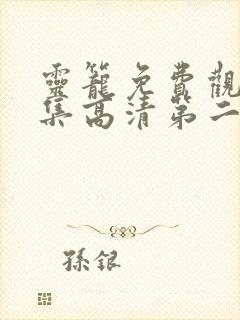 靈籠免費觀
集高清第二
孫銀